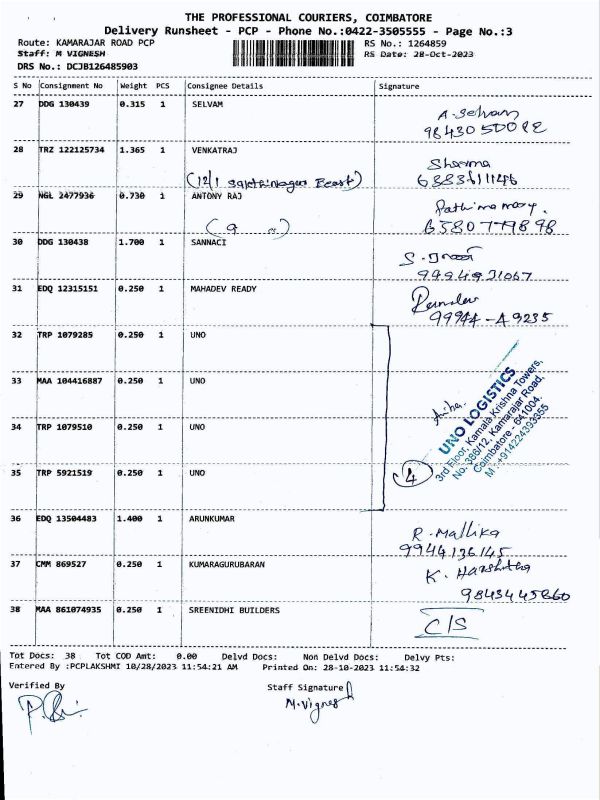 THE PROFESSIONAL COURIERS, COIMBATORE
Delivery Runsheet - PCP - Phone No.:0422-3505555 - Page No.:3
Route: KAMARAJAR ROAD PCP RS No.: 1264859
Staff: M VIGNESH RS Date: 28-Oct-2023
DRS No.: DCJB126485903
S No Consignment No Weight PCS Consignee Details Signature
27 DDG 130439 0.315 1 SELVAM A. Selvam
28 TRZ 122125734 1.365 1 VENKATRAJ Sharma
(12/1
29 NGL 2477936 0.730 1 ANTONY RAJ
30 DDG 130438 1.700 1 SANNACI
31 EDQ 12315151 0.250 1 MAHADEV READY
99944-49235
32 TRP 1079285 0.250 1 UNO
33 MAA 104416887 0.250 1 UNO
34 TRP 1079510 0.250 1 UNO
35 TRP 5921519 0.250 1 UNO
4
UNO LOGISTICS
3rd Floor, Kamala Krishna Towers,
No. 386/12, Kamarajar Road,
Coimbatore - 641004.
M: +914224393355
36 EDQ 13504483 1.400 1 ARUNKUMAR R. Mallika
9944136145
37 CMM 869527 0.250 1 KUMARAGURUBARAN K. Harshitha
9843445860
38 MAA 861074935 0.250 1 SREENIDHI BUILDERS C/S
Tot Docs: 38 Tot COD Amt: 0.00 Delvd Docs: Non Delvd Docs: Delvy Pts:
Entered By :PCPLAKSHMI 10/28/2023 11:54:21 AM Printed On: 28-10-2023 11:54:32
Verified By Staff Signature
M.Vignesh